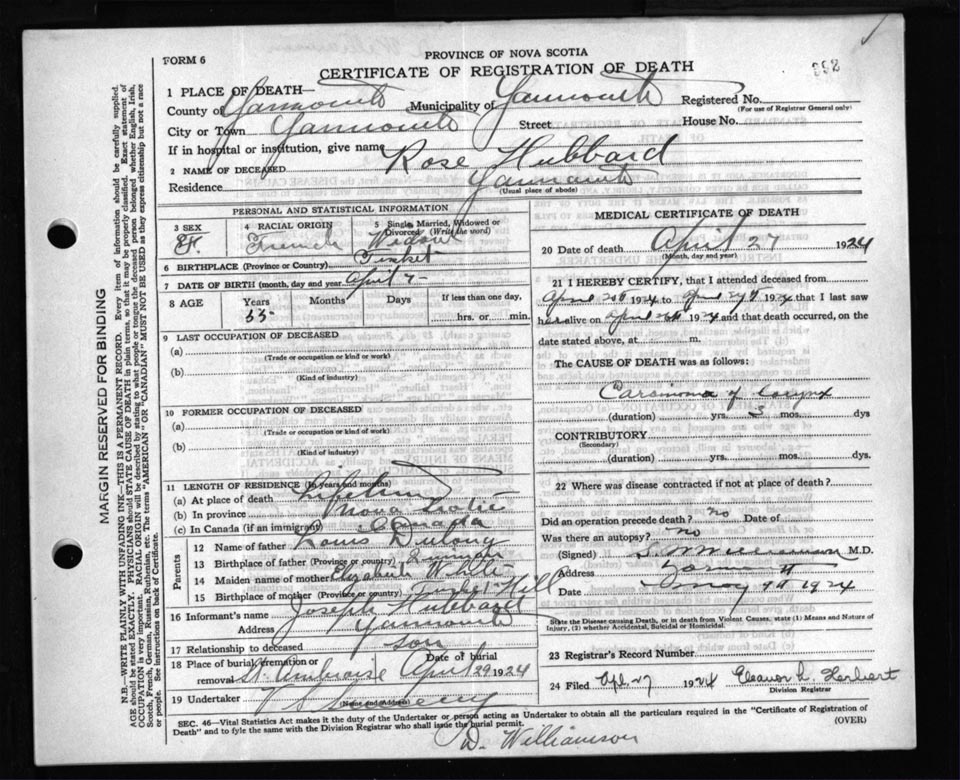 FORM 6
PROVINCE OF NOVA SCOTIA
CERTIFICATE OF REGISTRATION OF DEATH
352
1 PLACE OF DEATH—
County of Yarmouth Municipality of Yarmouth Registered No.
(For use of Registrar General only)
City or Town Yarmouth Street House No.
If in hospital or institution, give name
2 NAME OF DECEASED Rose Hubbard
Residence Yarmouth
(Usual place of abode)
PERSONAL AND STATISTICAL INFORMATION
3 SEX 4 RACIAL ORIGIN 5 Single, Married, Widowed or Divorced (Write the word)
F. French Widow
6 BIRTHPLACE (Province or Country) Tusket
7 DATE OF BIRTH (month, day and year) April 7
8 AGE Years Months Days If less than one day,
55 hrs. or min.
9 LAST OCCUPATION OF DECEASED
(a)
(Trade or occupation or kind or work)
(b)
(Kind of industry)
10 FORMER OCCUPATION OF DECEASED
(a)
(Trade or occupation or kind of work)
(b)
(Kind of industry)
11 LENGTH OF RESIDENCE (in years and months)
(a) At place of death Lifetime
(b) In province Nova Scotia
(c) In Canada (if an immigrant) Canada
Parents
12 Name of father Louis Dulong
13 Birthplace of father (Province or country)
14 Maiden name of mother Elizabeth White
15 Birthplace of mother (Province or country) Hill
16 Informant's name Joseph Hubbard
Address Yarmouth
17 Relationship to deceased son
18 Place of burial, cremation or removal St. Ambroise Date of burial April 29 1924
19 Undertaker V S Sweeny
(Name and Address)
MEDICAL CERTIFICATE OF DEATH
20 Date of death April 27 1924
(Month, day and year)
21 I HEREBY CERTIFY, that I attended deceased from
April 20th 1924 to April 27th 1924 that I last saw
her alive on April 26th 1924 and that death occurred, on the
date stated above, at m.
The CAUSE OF DEATH was as follows:
Carcinoma of Larynx
(duration) yrs. 3 mos. dys
CONTRIBUTORY
(Secondary)
(duration) yrs. mos. dys.
22 Where was disease contracted if not at place of death?
Did an operation precede death? no Date of
Was there an autopsy? No
(Signed) M.D.
Address Yarmouth
Date May 9th 1924
State the Disease causing Death, or in death from Violent Causes, state (1) Means and Nature of
Injury, (2) whether Accidental, Suicidal or Homicidal.
23 Registrar's Record Number
24 Filed Apl. 27 1924 Eleanor L. Herbert
Division Registrar
SEC. 46—Vital Statistics Act makes it the duty of the Undertaker or person acting as Undertaker to obtain all the particulars required in the "Certificate of Registration of
Death" and to fyle the same with the Division Registrar who shall issue the burial permit.
(OVER)
D. Williamson
MARGIN RESERVED FOR BINDING
N.B.—WRITE PLAINLY WITH UNFADING INK—THIS IS A PERMANENT RECORD. Every item of information should be carefully supplied.
AGE should be stated EXACTLY. PHYSICIANS should STATE CAUSE OF DEATH in plain terms, so that it may be properly classified. Exact statement of
OCCUPATION is very important. RACIAL ORIGIN will be described by stating to what people or tongue the deceased person belonged whether English, Irish,
Scotch, French, German, Russian, Ruthenian, etc. The terms "AMERICAN" OR "CANADIAN" MUST NOT BE USED as they express citizenship but not a race
or people. See instructions on back of Certificate.